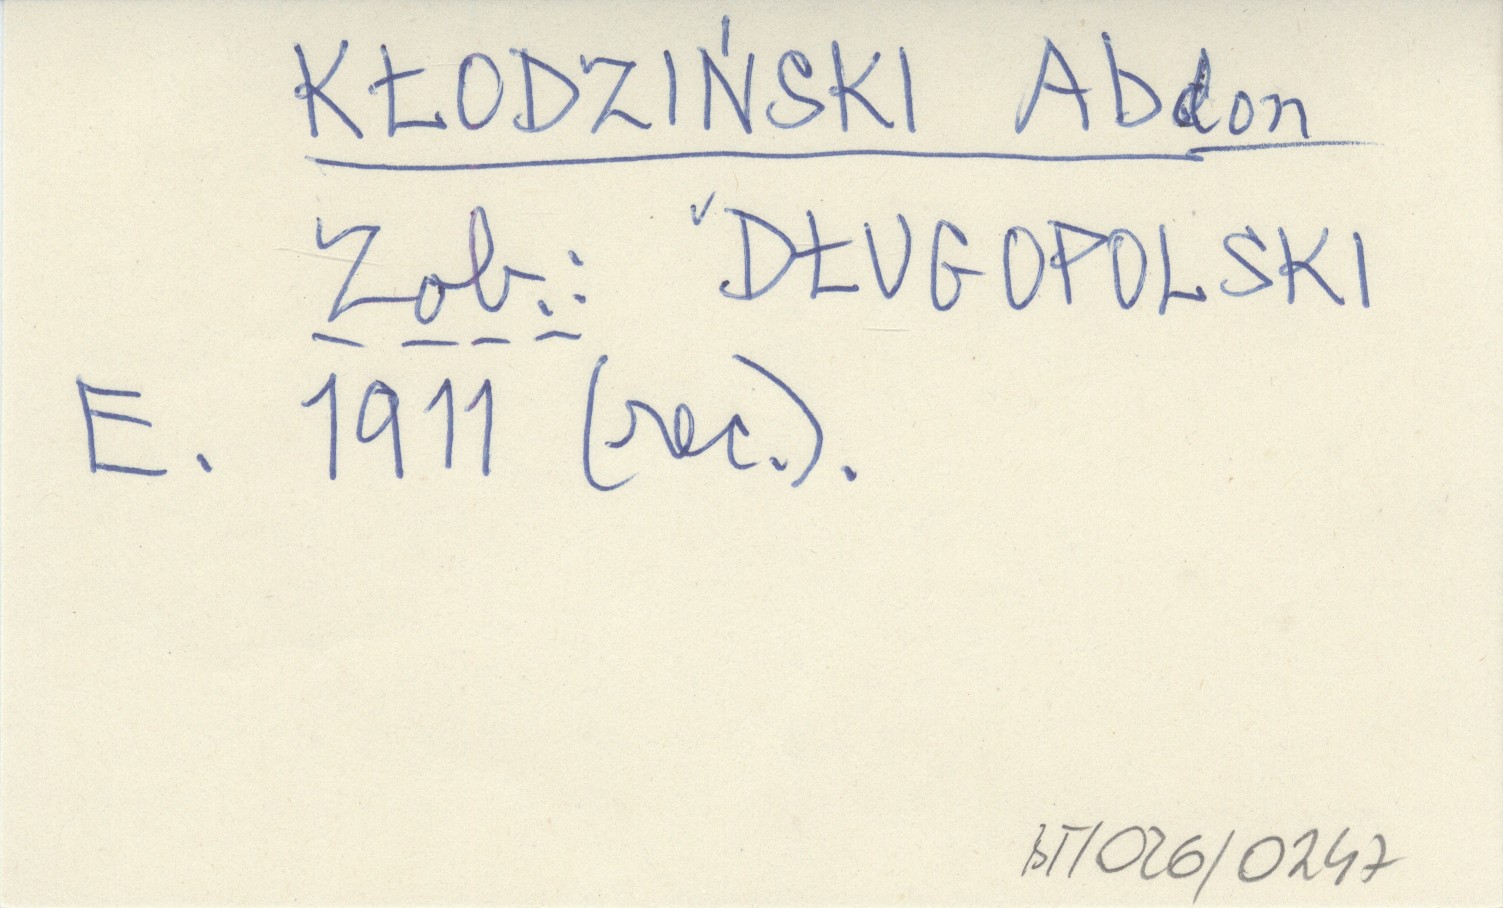 KŁODZIŃSKI Abdon
Zob.: DŁUGOPOLSKI
E. 1911 (rec.).
BT/026/0247